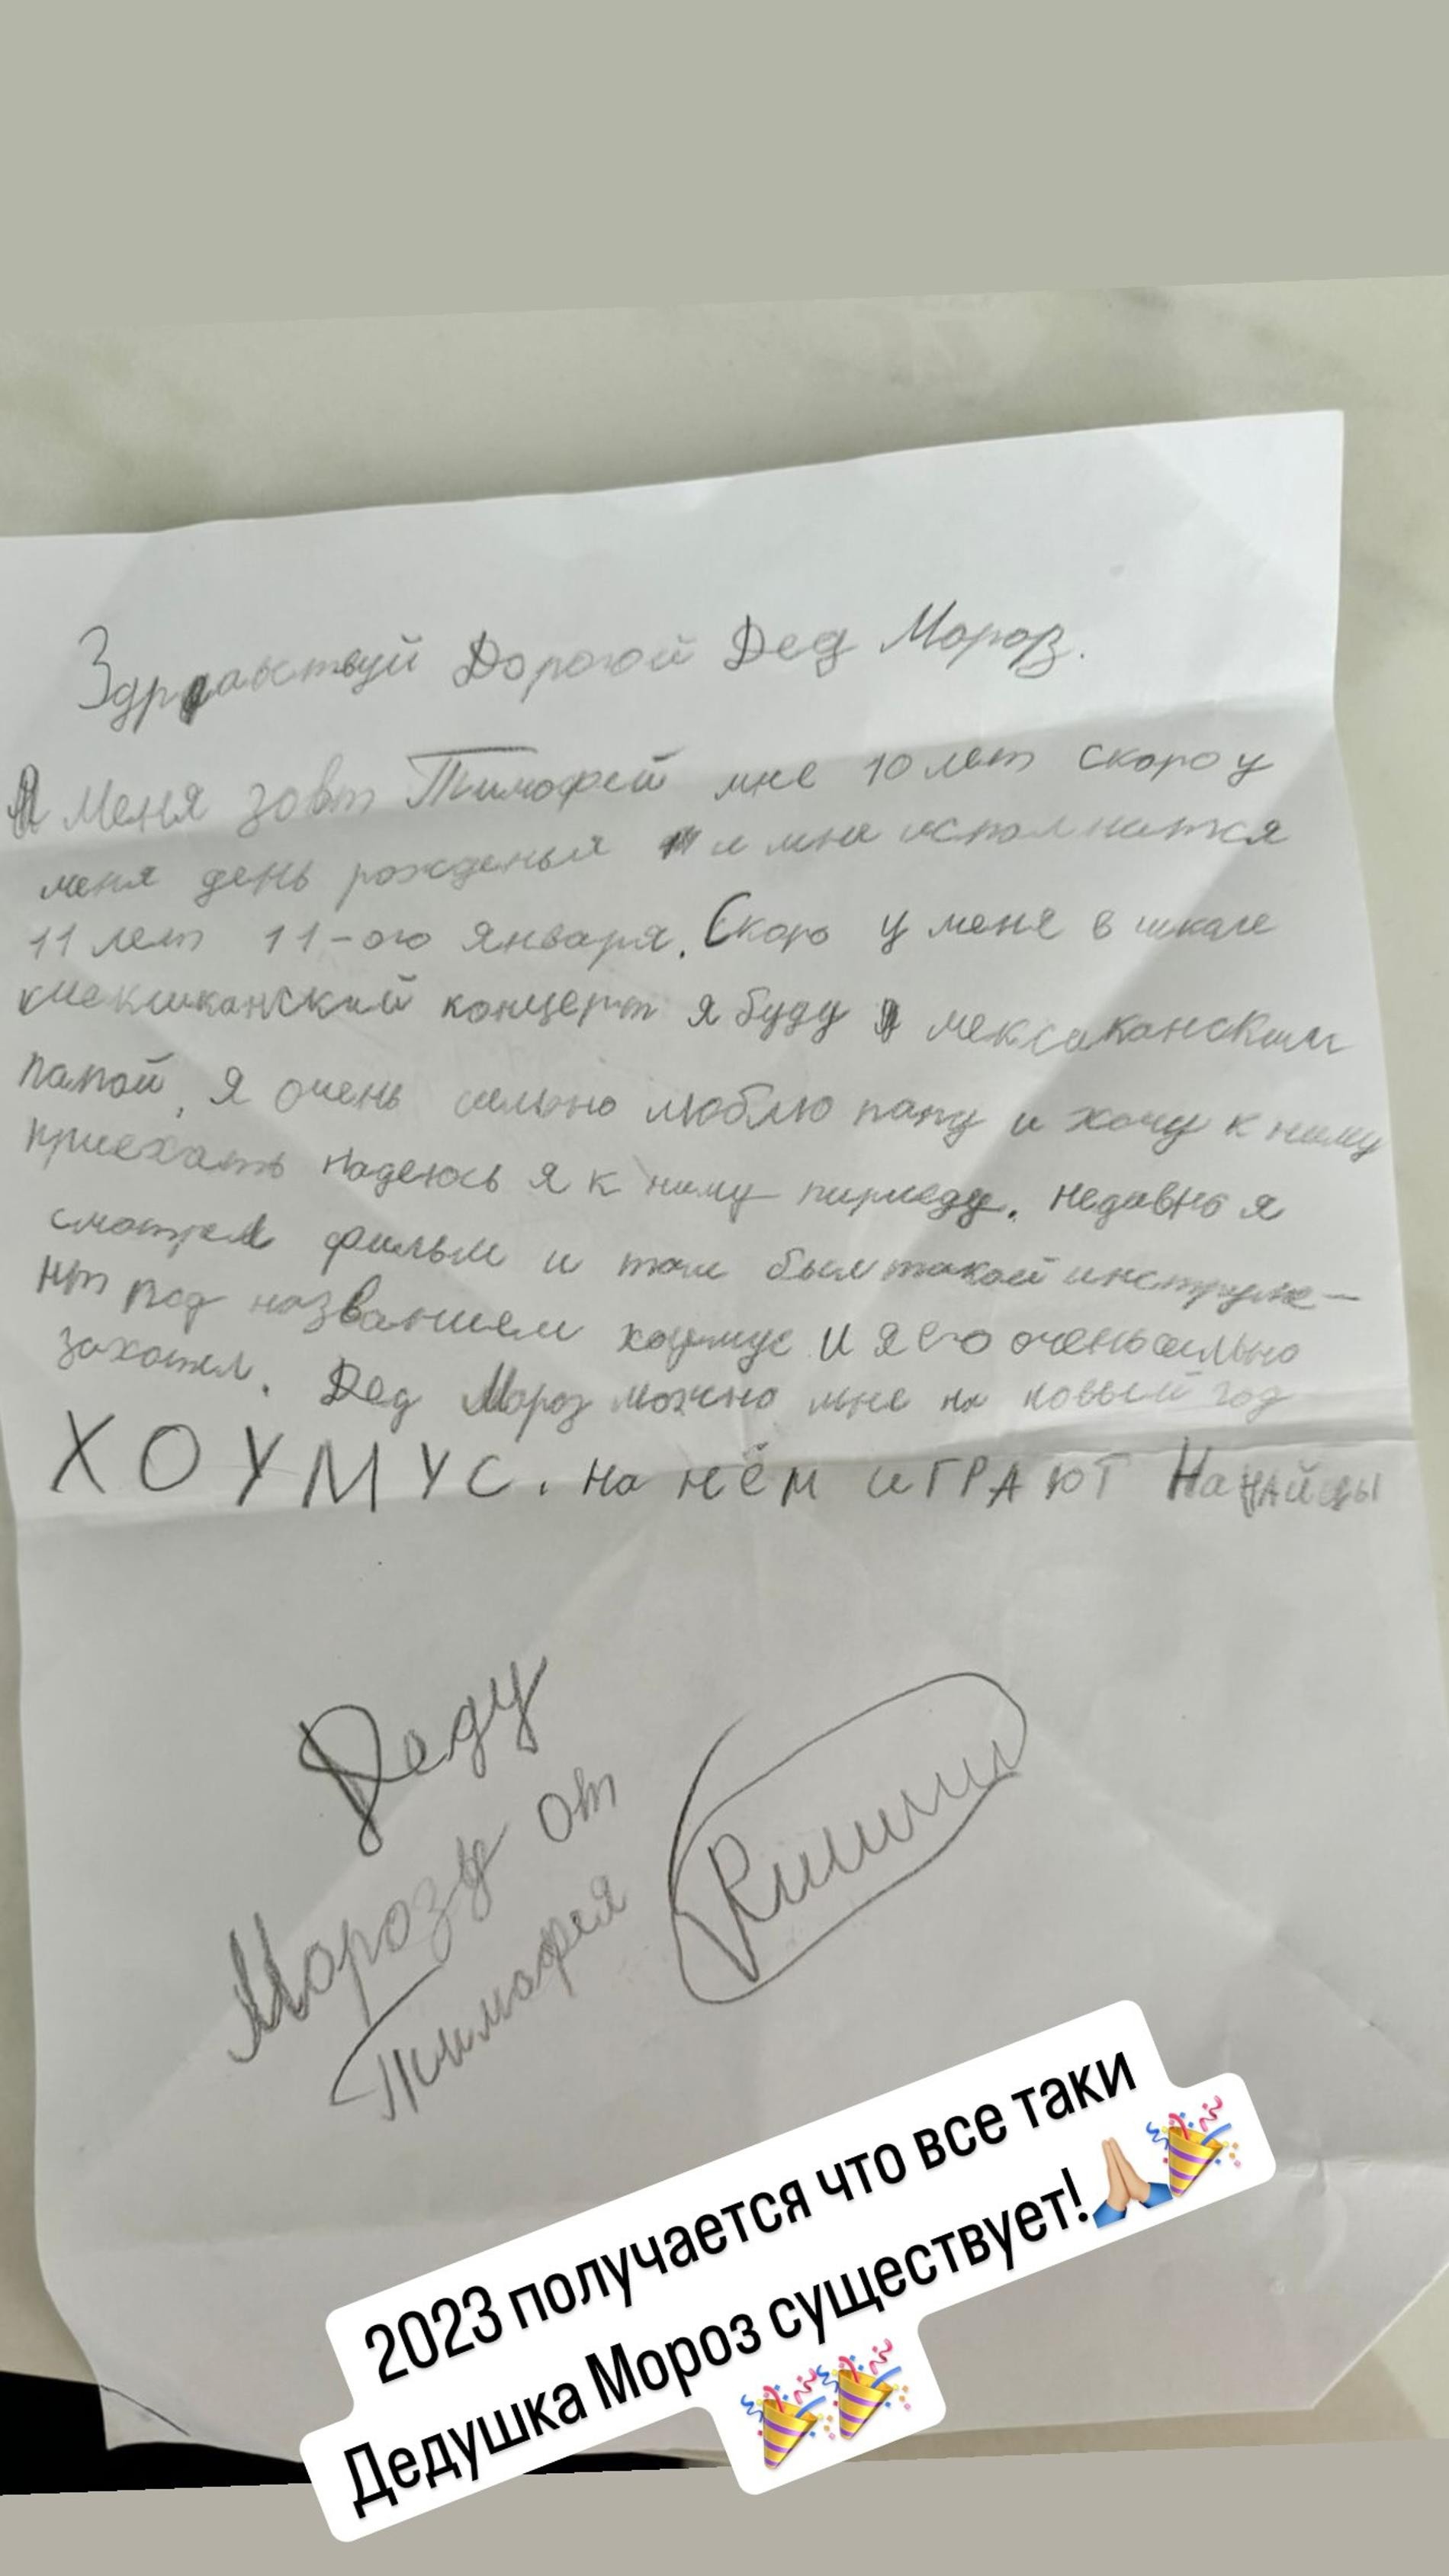 Здраавствуй Дорогой Дед Мороз.
Я Меня зовт Тимофей мне 10 лет скоро у
меня день рожденья и мне исполнится
11 лет 11-ого января. Скоро у меня в школе
мексиканский концерт я буду мексиканским
папой, я очень сильно люблю папу и хочу к нему
приехать надеюсь я к нему приеду. недавно я
смотрел фильм и там был такой инструме-
нт под названием хоумус и я его очень сильно
захотел. Дед Мороз можно мне на новый год
ХОУМУС. На нём иГРАЮТ НаНАйцы
Деду
Морозу от
Тимофея
2023 получается что все таки
Дедушка Мороз существует!🙏🏼🎉
🎉🎉